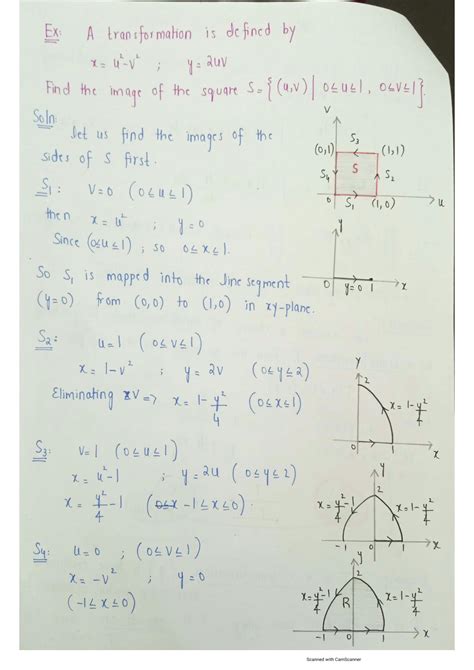 Ex: A transformation is defined by
x = u²-v² ; y = 2uv
Find the image of the square S = {(u,v) | 0≤u≤1, 0≤v≤1}.
Soln:
Let us find the images of the
sides of S first.
S₁: V=0 (0≤u≤1)
then x = u² ; y = 0
Since (0≤u≤1) ; so 0≤x≤1.
So S₁ is mapped into the line segment
(y=0) from (0,0) to (1,0) in xy-plane.
S₂: u=1 (0≤v≤1)
x = 1-v² ; y = 2v (0≤y≤2)
Eliminating V => x = 1 - y²/4 (0≤x≤1)
S₃: V=1 (0≤u≤1)
x = u²-1 ; y = 2u (0≤y≤2)
x = y²/4 - 1 (-1≤x≤0)
S₄: u=0 ; (0≤v≤1)
x = -v² ; y = 0
(-1≤x≤0)
V
S₃
(0,1) (1,1)
S₄ S S₂
0 S₁ (1,0) u
y
0 y=0 1 x
y
2
x = 1 - y²/4
0 1 x
y
2
x = y²/4 - 1 x = 1 - y²/4
-1 0 1 x
y
2
x = y²/4 - 1 R x = 1 - y²/4
-1 0 1 x
Scanned with CamScanner